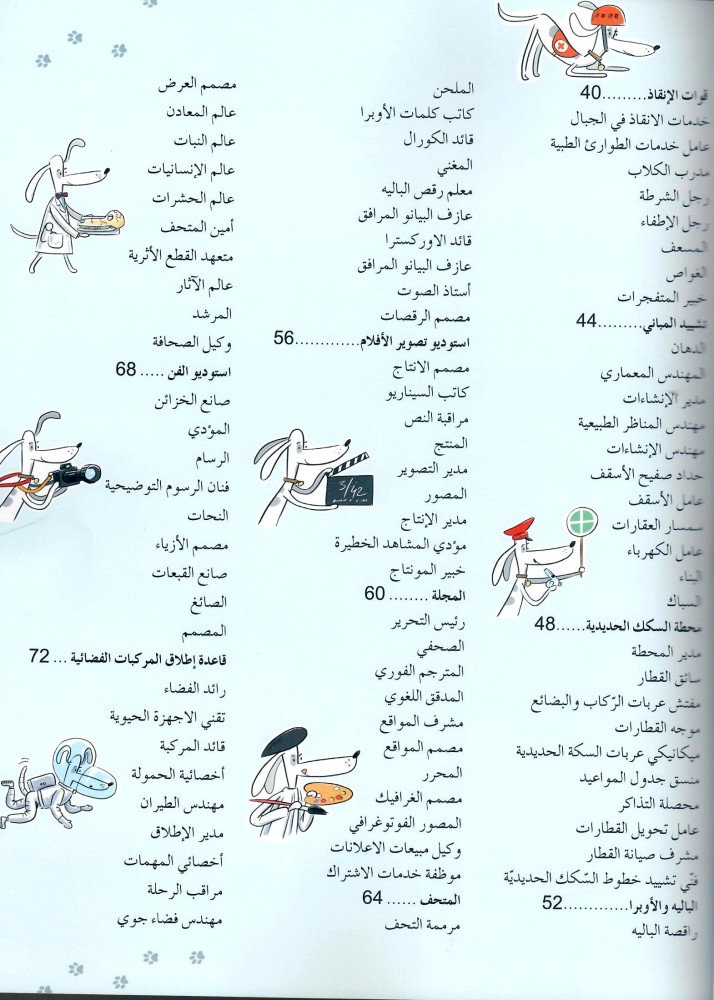 قوات الإنقاذ.........40
خدمات الانقاذ في الجبال
عامل خدمات الطوارئ الطبية
مدرب الكلاب
رجل الشرطة
رجل الإطفاء
المسعف
الغواص
خبير المتفجرات
تشييد المباني.........44
الدهان
المهندس المعماري
مدير الإنشاءات
مهندس المناظر الطبيعية
مهندس الإنشاءات
حداد صفيح الأسقف
عامل الأسقف
سمسار العقارات
عامل الكهرباء
البناء
السباك
محطة السكك الحديدية......48
مدير المحطة
سائق القطار
مفتش عربات الرّكاب والبضائع
موجه القطارات
ميكانيكي عربات السكة الحديدية
منسق جدول المواعيد
محصلة التذاكر
عامل تحويل القطارات
مشرف صيانة القطار
فنّي تشييد خطوط السّكك الحديديّة
الباليه والأوبرا.............52
راقصة الباليه
الملحن
كاتب كلمات الأوبرا
قائد الكورال
المغني
معلم رقص الباليه
عازف البيانو المرافق
قائد الاوركسترا
عازف البيانو المرافق
أستاذ الصوت
مصمم الرقصات
استوديو تصوير الأفلام.............56
مصمم الانتاج
كاتب السيناريو
مراقبة النص
المنتج
مدير التصوير
المصور
مدير الإنتاج
مؤدي المشاهد الخطيرة
خبير المونتاج
المجلة ........ 60
رئيس التحرير
الصحفي
المترجم الفوري
المدقق اللغوي
مشرف المواقع
مصمم المواقع
المحرر
مصمم الغرافيك
المصور الفوتوغرافي
وكيل مبيعات الاعلانات
موظفة خدمات الاشتراك
المتحف ...... 64
مرممة التحف
3/42
مصمم العرض
عالم المعادن
عالم النبات
عالم الإنسانيات
عالم الحشرات
أمين المتحف
متعهد القطع الأثرية
عالم الآثار
المرشد
وكيل الصحافة
استوديو الفن ..... 68
صانع الخزائن
المؤدي
الرسام
فنان الرسوم التوضيحية
النحات
مصمم الأزياء
صانع القبعات
الصائغ
المصمم
قاعدة إطلاق المركبات الفضائية ... 72
رائد الفضاء
تقني الاجهزة الحيوية
قائد المركبة
أخصائية الحمولة
مهندس الطيران
مدير الإطلاق
أخصائي المهمات
مراقب الرحلة
مهندس فضاء جوي